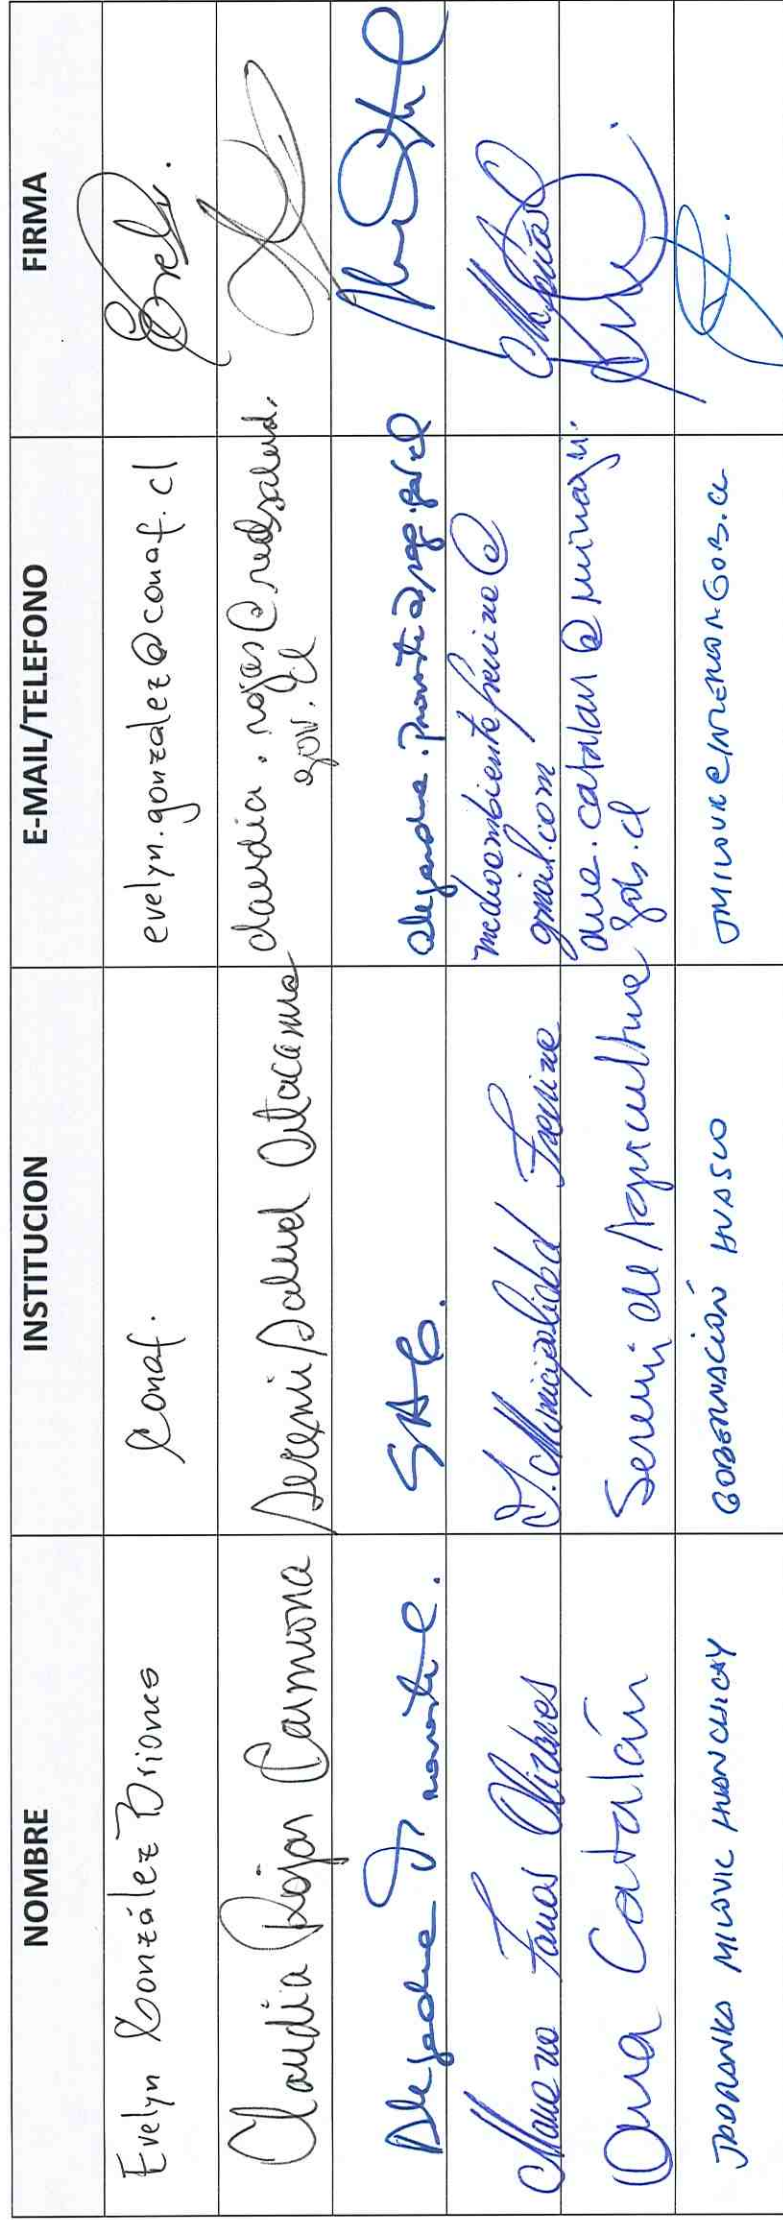 NOMBRE INSTITUCION E-MAIL/TELEFONO FIRMA
Evelyn González Briones Conaf. evelyn.gonzalez@conaf.cl
Claudia Rojas Carmona Seremi Salud Atacama claudia.rojas@redsalud.
gov.cl
Alejandra Provoste C. SAG. alejandra.provoste@sag.gob.cl
Olivares I. Municipalidad Freirina medioambientefreirina@
gmail.com
Ana Catalán Seremi de Agricultura ana.catalan@minagri.
gob.cl
MILOVIC HUANCHICAY GOBERNACIÓN HUASCO